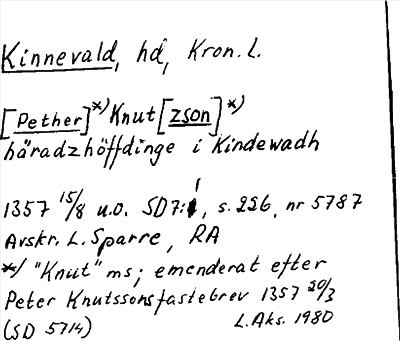 Kinnevald, hd, Kron. L.
[Pether]*) Knut[zson]*)
häradzhöffdinge i Kindewadh
1357 15/8 u.o. SD7:1, s. 226, nr 5787
Avskr. L. Sparre, RA
*) "Knut" ms; emenderat efter
Peter Knutssons fastebrev 1357 20/3
(SD 5714) L. Aks. 1980